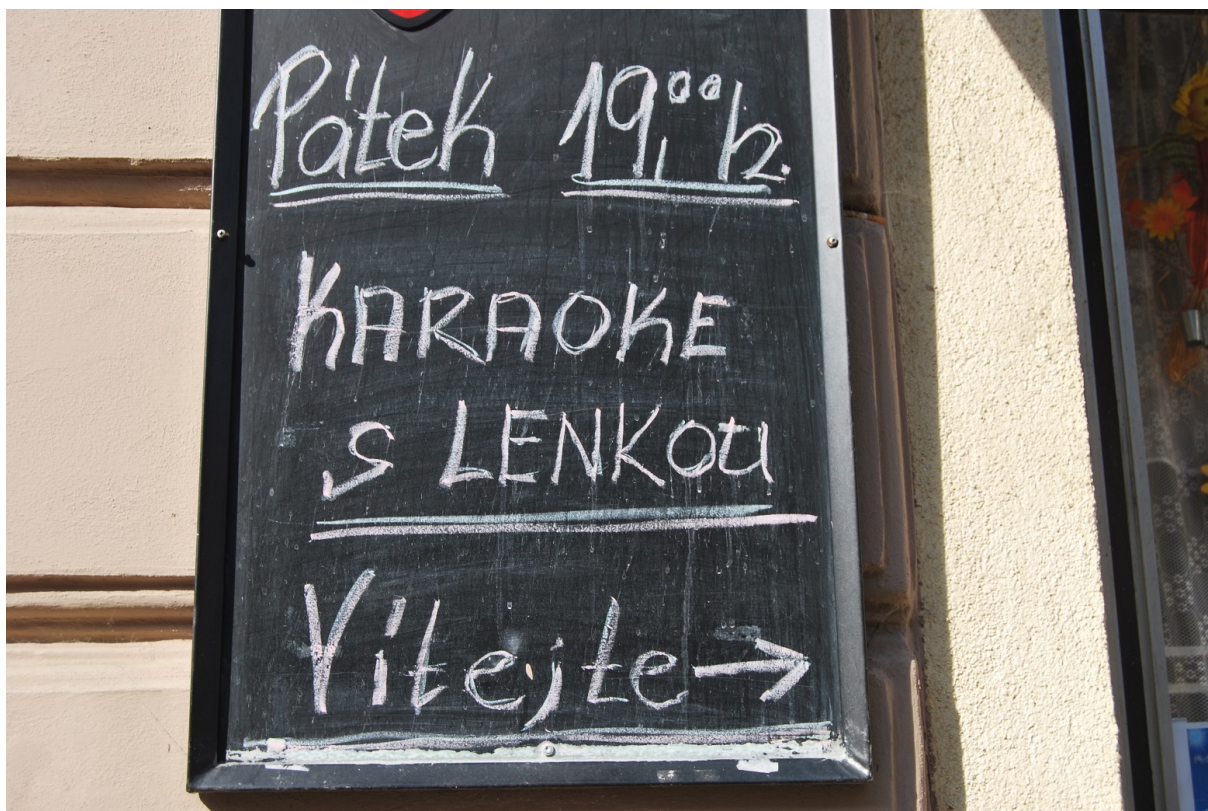 Pátek 19,00 h.
KARAOKE
S LENKOU
Vítejte →